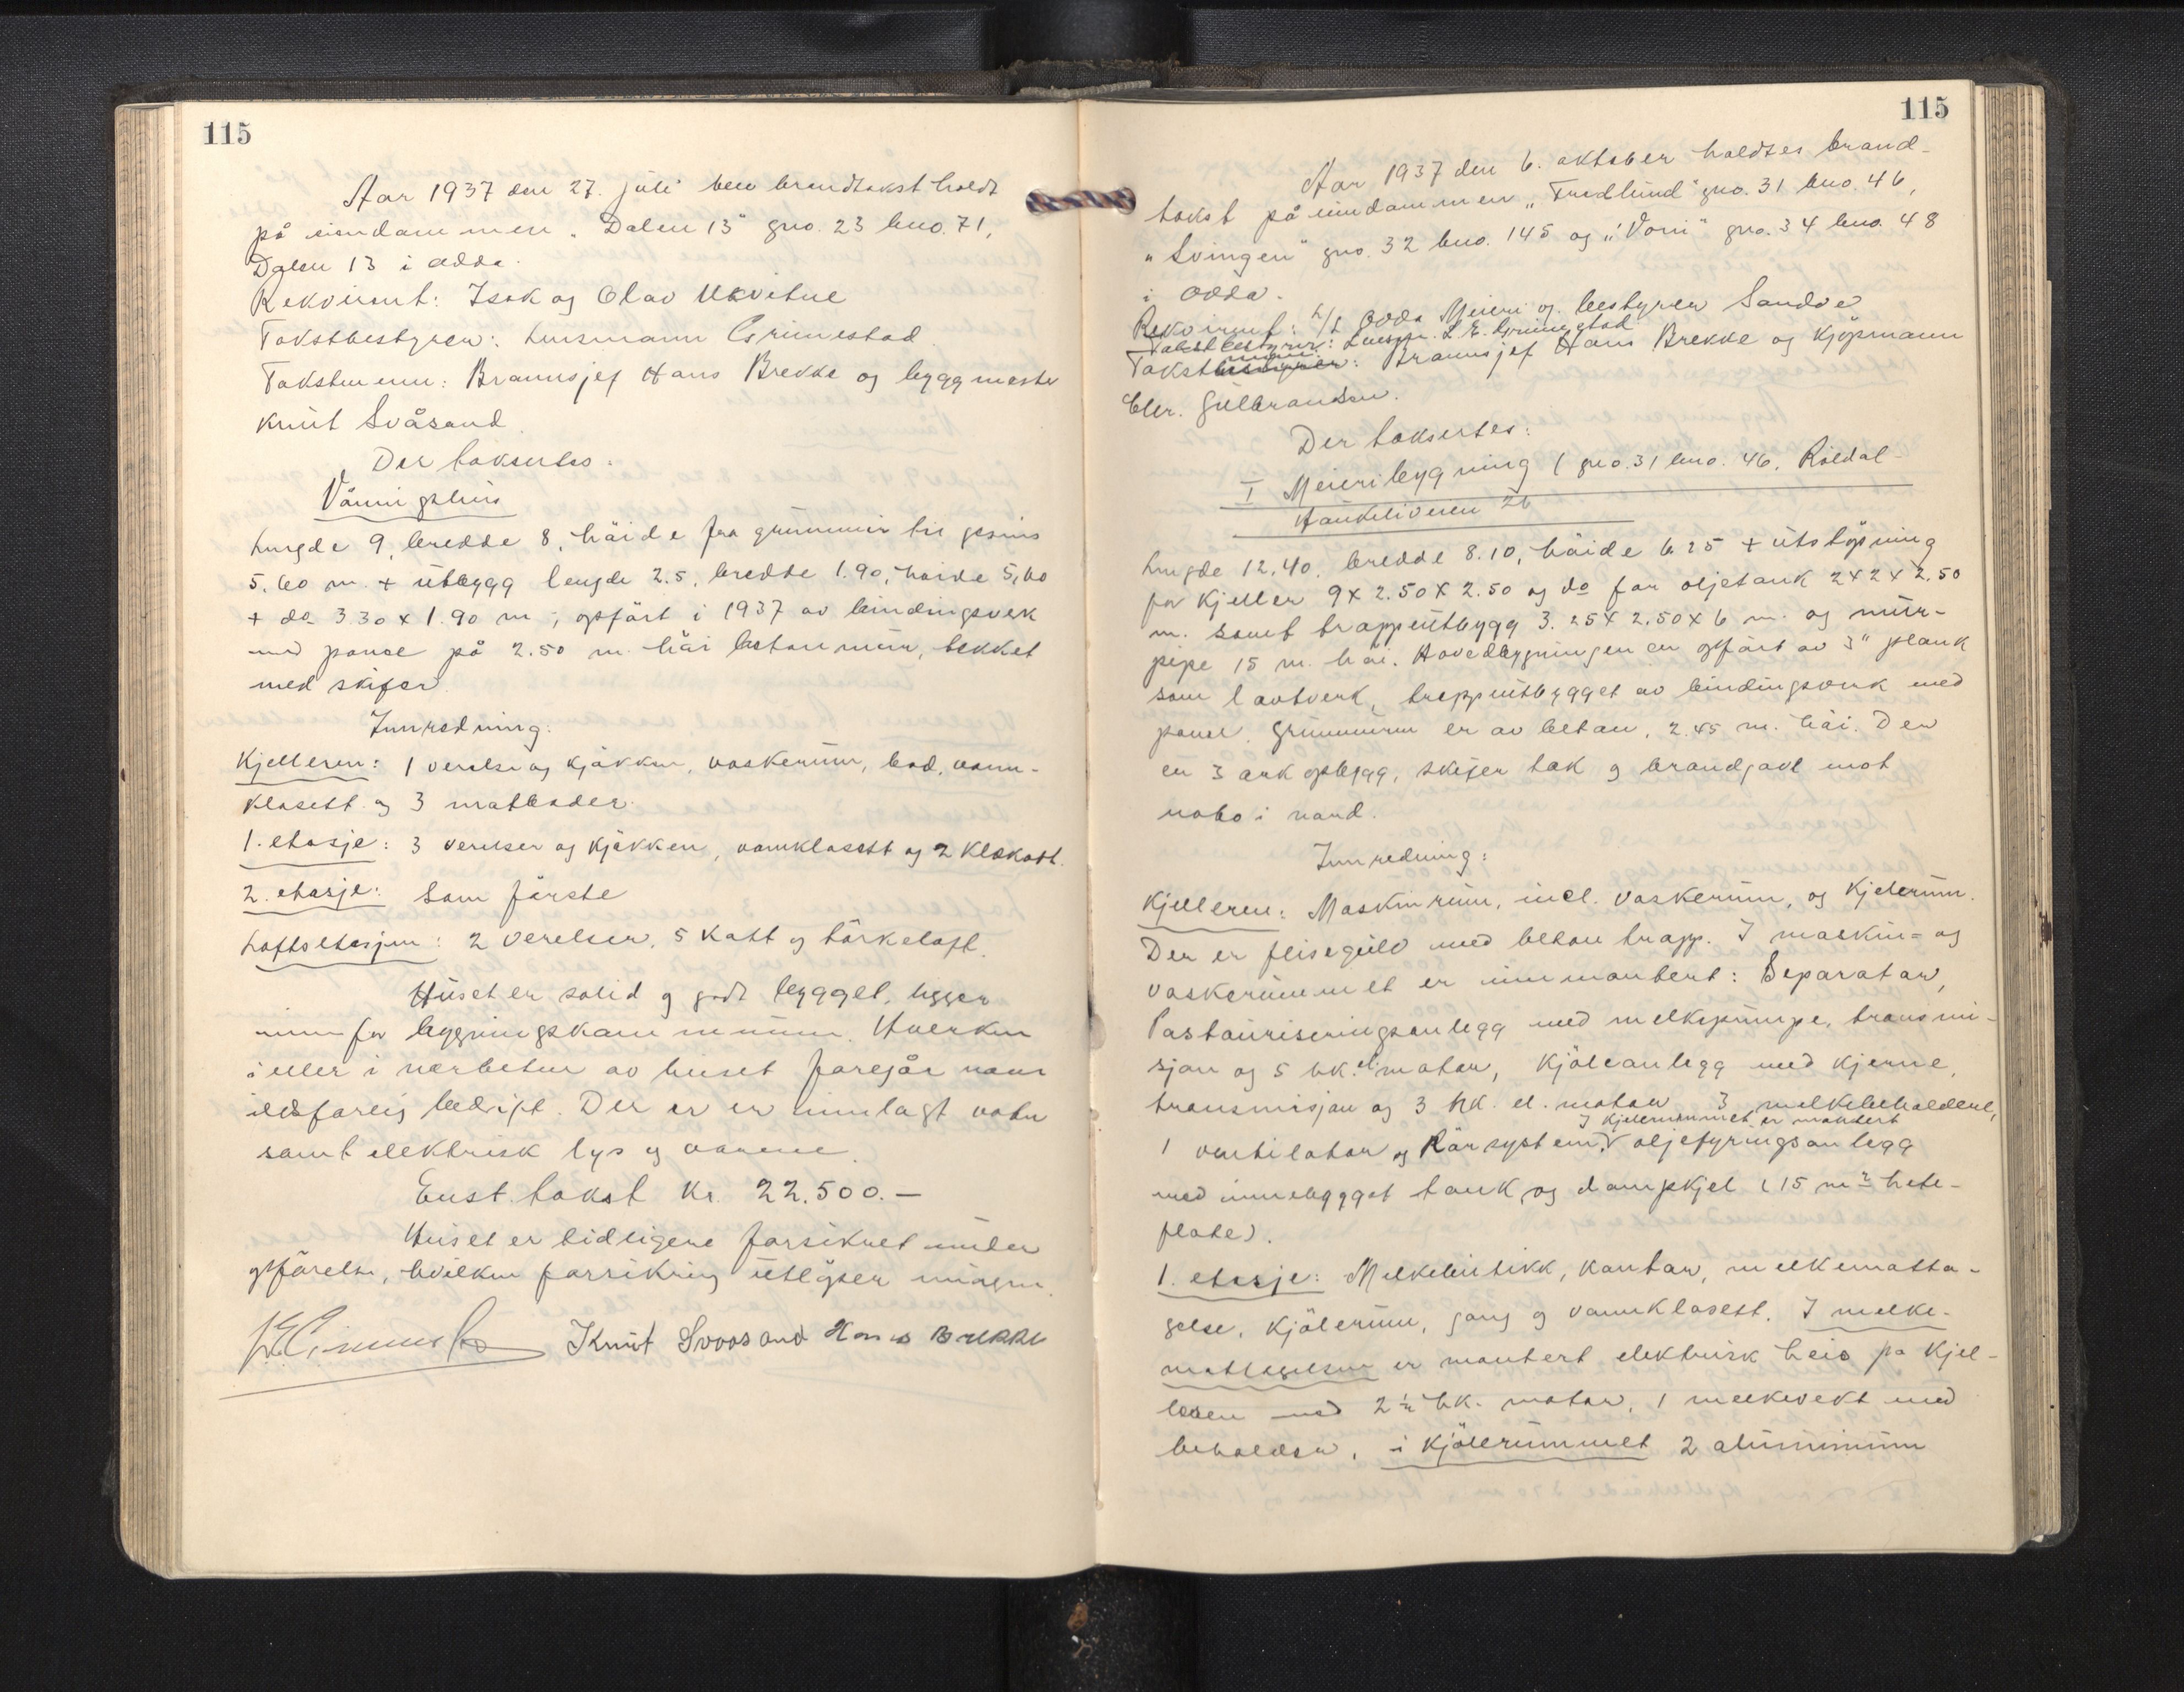 115
Aar 1937 den 27. juli blev brandtakst holdt
på eiendommen "Dalen 13" gno. 23 bno. 71,
Dalen 13 i Odda.
Rekvirent: Isak og Olav
Takstbestyrer: Lensmann Grimestad.
Takstmenn: Brannsjef Hans Brekke og byggmester
Knut Svåsand.
Der taksertes:
Våningshus
Lengde 9, bredde 8, höide fra grunnmur til gesims
5.60 m. + utbygg lengde 2.5, bredde 1.90, höide 5,60
+ do 3.30 x 1.90 m; opfört i 1937 av bindingsverk
med panel på 2.50 m. höi betonmur, tekket
med skifer.
Innredning:
Kjelleren: 1 verelse og kjökken, vaskerum, bad, vann-
klosett og 3 matboder.
1. etasje: 3 verelser og kjökken, vannklosett og 2 kleskott.
2. etasje: Som förste
Loftsetasjen: 2 verelser, 5 kott og törkeloft.
Huset er solid og godt bygget, ligger
innenfor bygningskommunen. Hverken
i eller i nærheten av huset foregår noen
ildsfarlig bedrift. Der er er innlagt vatn
samt elektrisk lys og varme.
Enst. takst kr. 22.500.-
Huset er tidligere forsikret under
opförelse, hvilken forsikring utlöper
Knut Svaasand Hans Brekke
115
Aar 1937 den 6. oktober holdtes brand-
takst på eiendommen "Fredlund" gno. 31 bno. 46,
"Svingen" gno. 32 bno. 145 og "Vori" gno. 34 bno. 48
i Odda.
Rekvirent: L/L Odda Meieri og bestyrer Sandve
Takstbestyrer: Lensm. L. E. Grimestad
Takstbestyrer menn: Brannsjef Hans Brekke og kjöpmann
Chr. Gulbrandsen.
Der taksertes:
I Meieribygning (gno. 31 bno. 46, Röldal-
Haukeliveien 26
Lengde 12.40, bredde 8.10, höide 6.25 + utstöpning
for kjeller 9 x 2.50 x 2.50 og do for oljetank 2 x 2 x 2.50
m. samt trappeutbygg 3.25 x 2.50 x 6 m. og mur-
pipe 15 m. höi. Hovedbygningen er opfört av 3" plank
som lavtverk, trappeutbygget av bindingsverk med
panel. Grunnmuren er av betong, 2.45 m. höi. Der
er 3 ark opbygg, skifer tak og brandgavl mot
nabo i nord.
Innredning:
Kjelleren: Maskinrum, incl. vaskerum, og kjelerum.
Der er flisegulv med betong trapp. I maskin- og
vaskerummet er innmontert: Separator,
Pastauriseringsanlegg med melkepumpe, transmi-
sjon og 5 hk. el. motor, kjöleanlegg med kjerne,
transmisjon og 3 hk. el. motor 3 melkebeholdere,
I kjelerummet er montert
1 ventilator og Rörsystem. V oljefyringsanlegg
med innebygget tank og dampkjel (15 m2 hete-
flate).
1. etasje: Melkebutikk, kontor, melkemotta-
gelse, kjölerum, gang og vannklosett. I melke-
mottagelsen er montert elektrisk heis på kjel-
leren med 2 1/2 hk. motor, 1 melkevekt med
beholder, i kjölerummet 2 aluminium